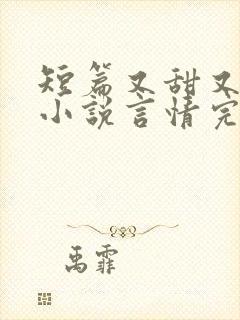 短篇又甜又
小说言情完
禹霏